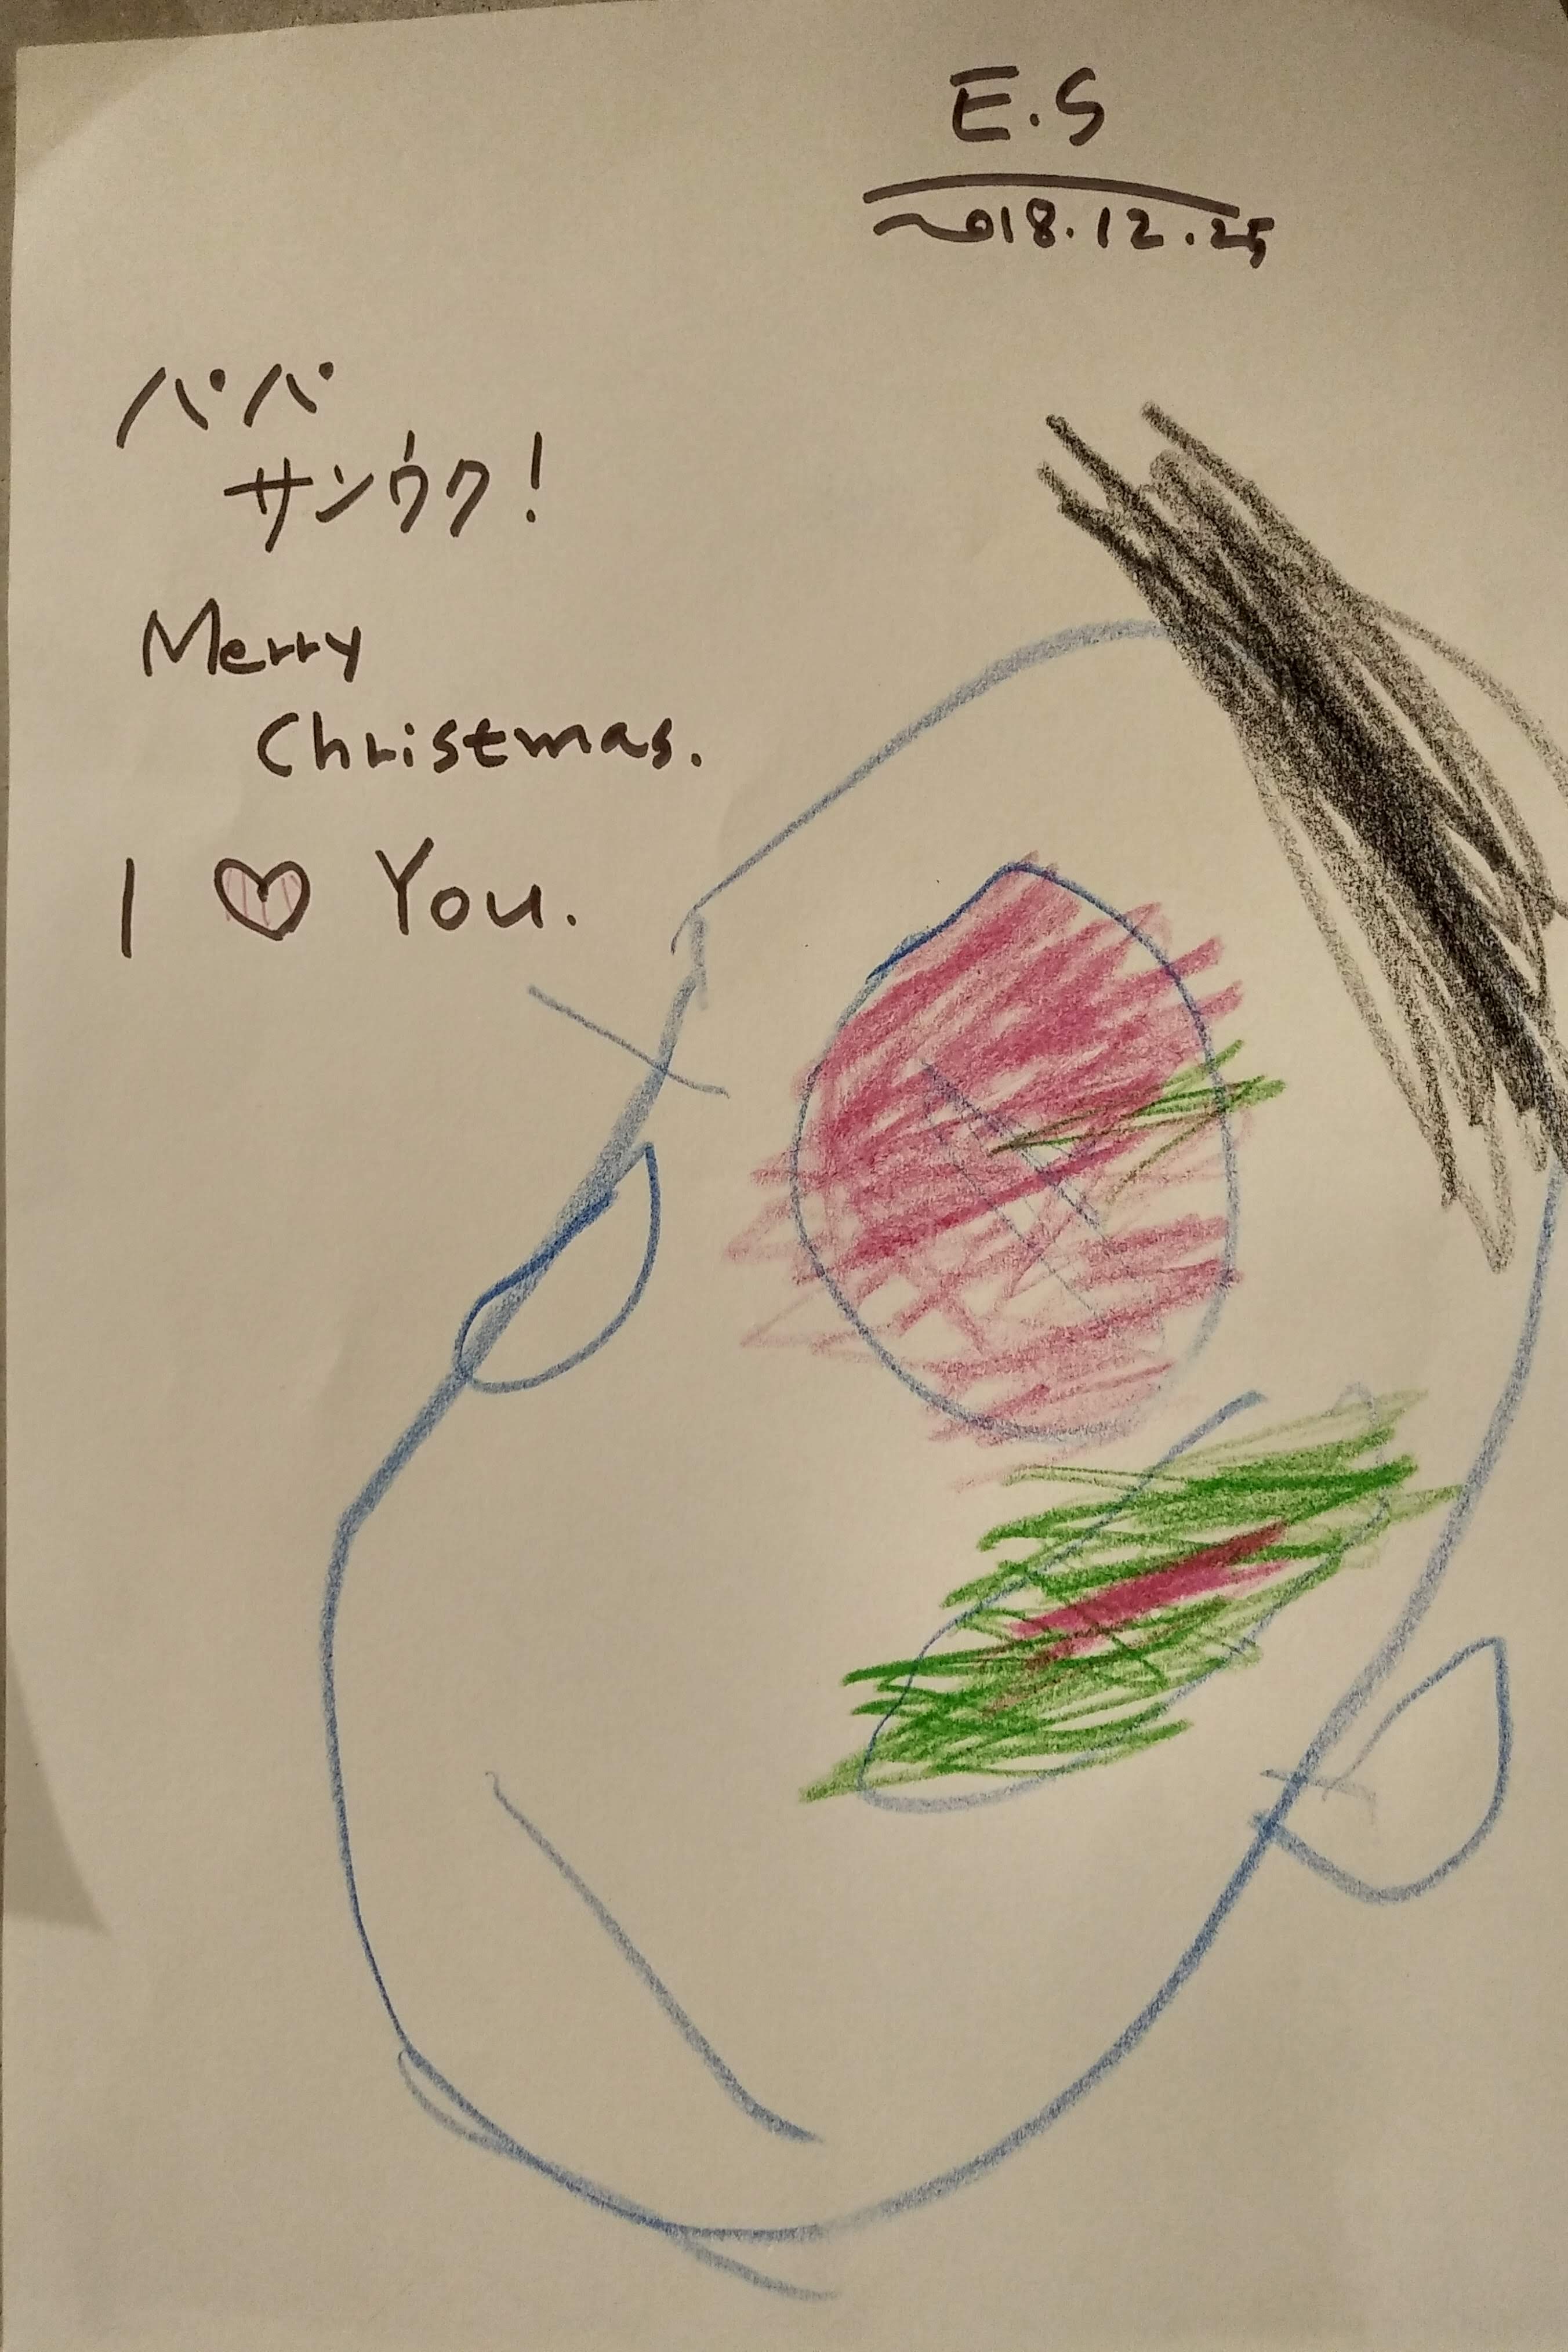 E.S
2018.12.25
パパ
サンウク!
Merry
Christmas.
I ♡ You.